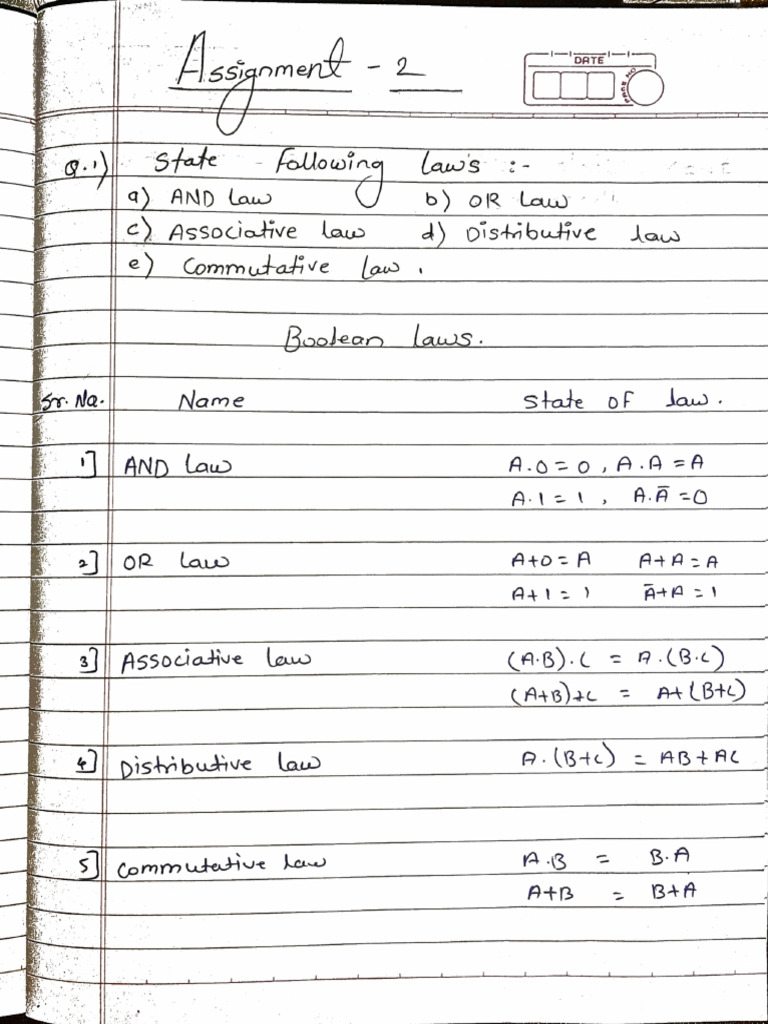 Assignment - 2
DATE
PAGE NO.
Q.1) State Following law's :-
a) AND Law b) OR Law
c) Associative law d) Distributive law
e) Commutative law.
Boolean laws.
Sr. No. Name State of law.
1] AND Law A.0=0, A.A=A
A.1=1, A.Ā=0
2] OR law A+0=A A+A=A
A+1=1 Ā+A=1
3] Associative law (A.B).C = A.(B.C)
(A+B)+C = A+(B+C)
4] Distributive law A.(B+C) = AB+AC
5] Commutative law A.B = B.A
A+B = B+A